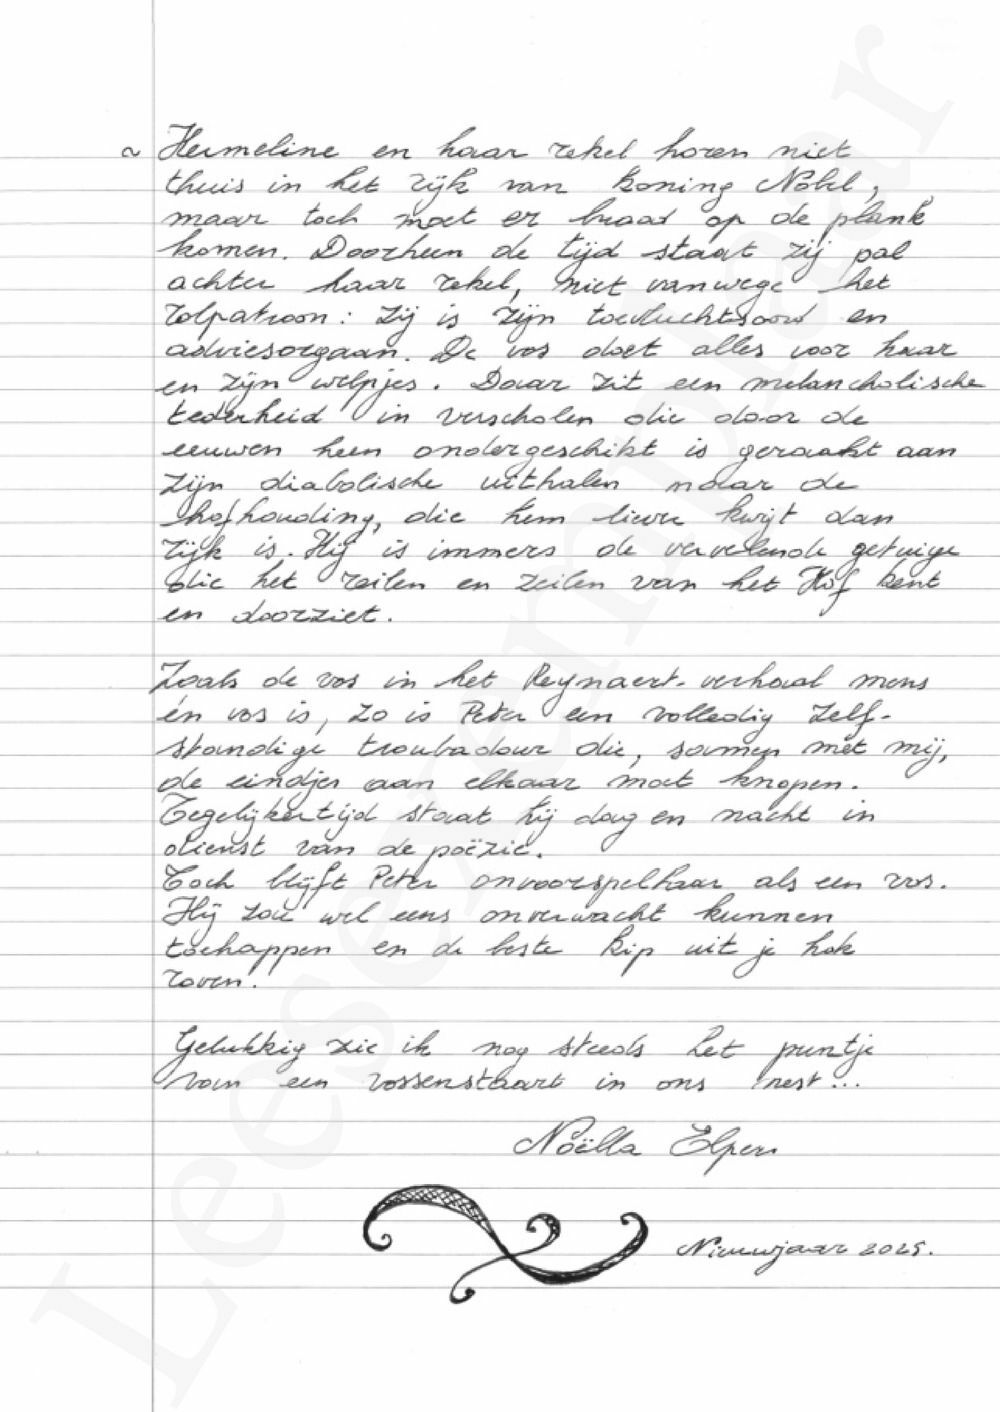 ~ Hermeline en haar rekel horen niet
thuis in het rijk van koning Nobel,
maar toch moet er brood op de plank
komen. Doorheen de tijd staat zij pal
achter haar rekel, niet vanwege het
rolpatroon: zij is zijn toevluchtsoord en
adviesorgaan. De vos doet alles voor haar
en zijn welpjes. Daar zit een melancholische
tederheid in verscholen die door de
eeuwen heen ondergeschikt is geraakt aan
zijn diabolische uithalen naar de
hofhouding, die hem liever kwijt dan
rijk is. Hij is immers de vervelende getuige
die het reilen en zeilen van het Hof kent
en doorziet.
Zoals de vos in het Reynaert-verhaal mens
én vos is, zo is Peter een volledig zelf-
standige troubadour die, samen mét mij,
de eindjes aan elkaar moet knopen.
Tegelijkertijd staat hij dag en nacht in
dienst van de poëzie.
Toch blijft Peter onvoorspelbaar als een vos.
Hij zou wel eens onverwacht kunnen
toehappen en de beste kip uit je hok
roven!
Gelukkig zie ik nog steeds het puntje
van een vossenstaart in ons nest...
Noëlla Elpers
Nieuwjaar 2025.
Leesexemplaar